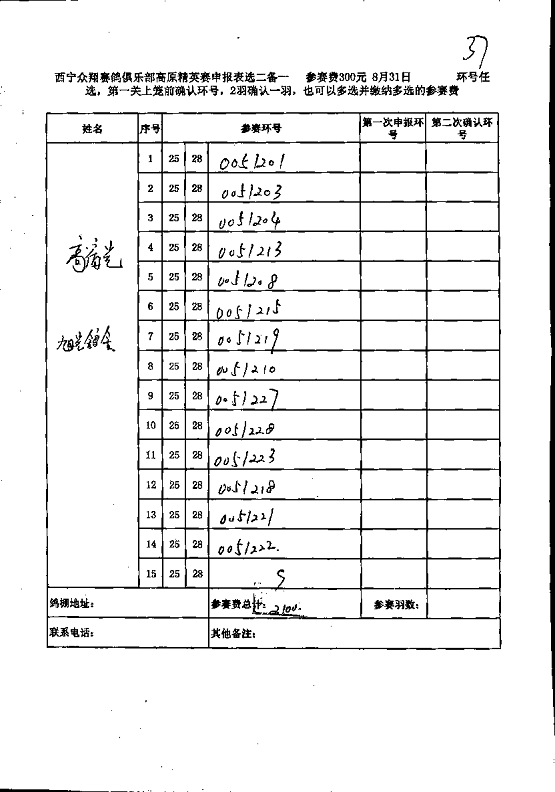 37
西宁众翔赛鸽俱乐部高原精英赛申报表选二备一 参赛费300元 8月31日 环号任
选，第一关上笼前确认环号，2羽确认一羽，也可以多选并缴纳多选的参赛费
姓名 序号 参赛环号 第一次申报环号 第二次确认环号
1 25 28 0051201
2 25 28 0051203
3 25 28 0051204
4 25 28 0051213
5 25 28 0051208
6 25 28 0051215
7 25 28 0051219
8 25 28 0051210
9 25 28 0051227
10 25 28 0051228
11 25 28 0051223
12 25 28 0051218
13 25 28 0051221
14 25 28 0051222.
15 25 28
鸽棚地址： 参赛费总计： 2100. 参赛羽数：
联系电话： 其他备注：